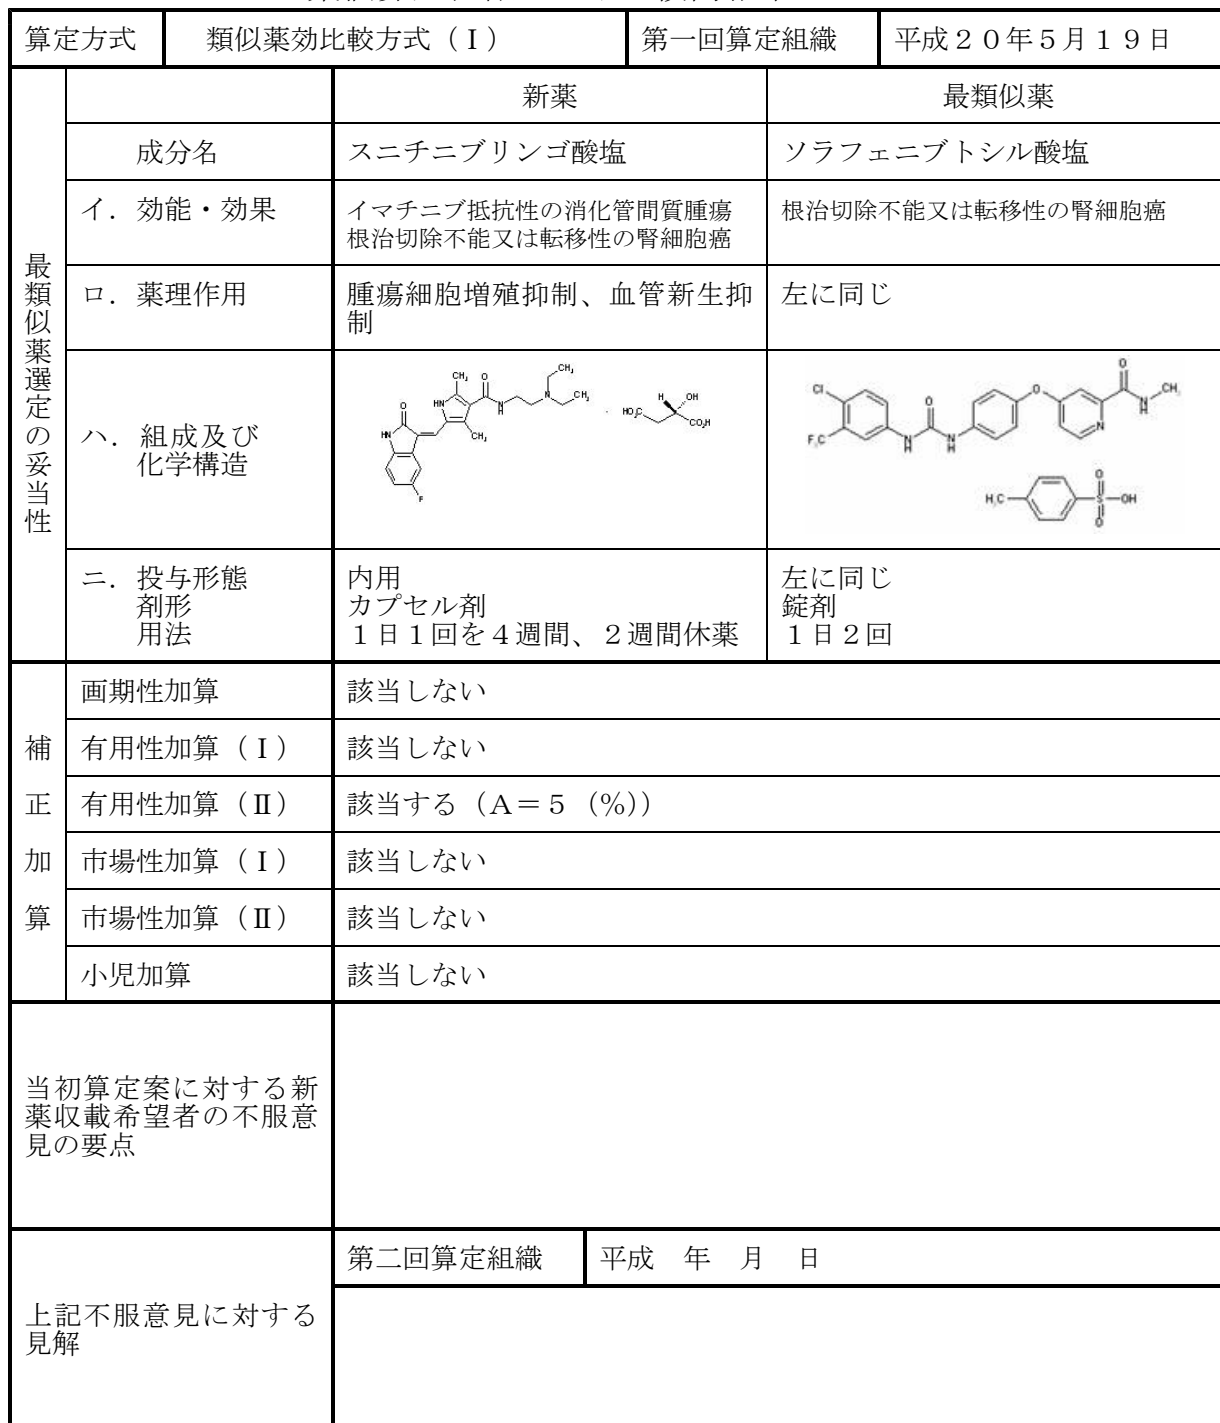 算定方式 類似薬効比較方式（Ⅰ） 第一回算定組織 平成２０年５月１９日
新薬 最類似薬
最類似薬選定の妥当性
成分名 スニチニブリンゴ酸塩 ソラフェニブトシル酸塩
イ．効能・効果 イマチニブ抵抗性の消化管間質腫瘍 根治切除不能又は転移性の腎細胞癌
根治切除不能又は転移性の腎細胞癌
ロ．薬理作用 腫瘍細胞増殖抑制、血管新生抑 左に同じ
制
ハ．組成及び
化学構造
ニ．投与形態 内用 左に同じ
剤形 カプセル剤 錠剤
用法 １日１回を４週間、２週間休薬 １日２回
補正加算
画期性加算 該当しない
有用性加算（Ⅰ） 該当しない
有用性加算（Ⅱ） 該当する（A＝５（％））
市場性加算（Ⅰ） 該当しない
市場性加算（Ⅱ） 該当しない
小児加算 該当しない
当初算定案に対する新
薬収載希望者の不服意
見の要点
第二回算定組織 平成 年 月 日
上記不服意見に対する
見解